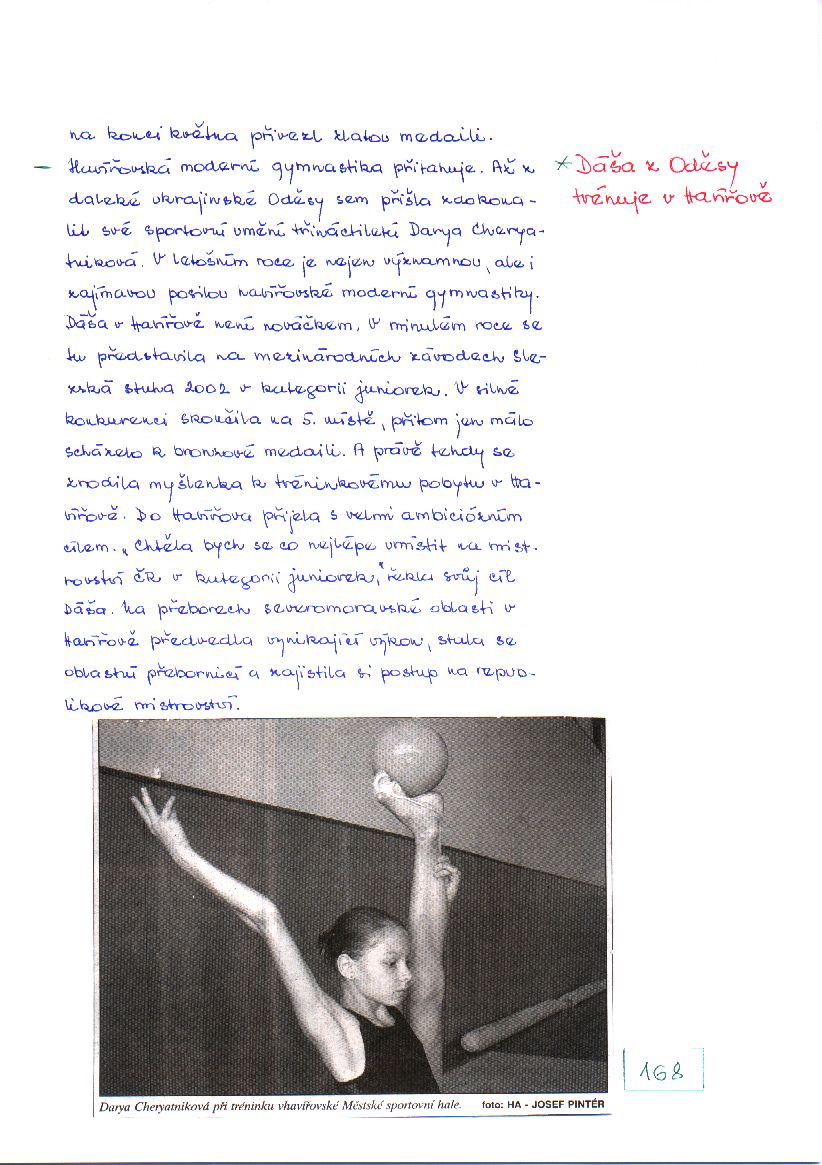 na konci května přivezl zlatou medaili.
– Havířovská moderní gymnastika přitahuje. Až z
daleké ukrajinské Oděsy sem přišla zdokona-
lit své sportovní umění třináctiletá Darya Cherya-
tniková. V letošním roce je nejen významnou, ale i
zajímavou posilou havířovské moderní gymnastiky.
Dáša v Havířově není nováčkem. V minulém roce se
tu představila na mezinárodních závodech Sle-
zská stuha 2002 v kategorii juniorek. V silné
konkurenci skončila na 5. místě, přitom jen málo
scházelo k bronzové medaili. A právě tehdy se
zrodila myšlenka k tréninkovému pobytu v Ha-
vířově. Do Havířova přijela s velmi ambiciózním
cílem. „Chtěla bych se co nejlépe umístit na mist-
rovství ČR v kategorii juniorek," řekla svůj cíl
Dáša. Na přeborech severomoravské oblasti v
Havířově předvedla vynikající výkon, stala se
oblastní přebornicí a zajistila si postup na repub-
likové mistrovství.
* Dáša z Oděsy
trénuje v Havířově
Darya Cheryatniková při tréninku vhavířovské Městské sportovní hale. foto: HA - JOSEF PINTÉR
168